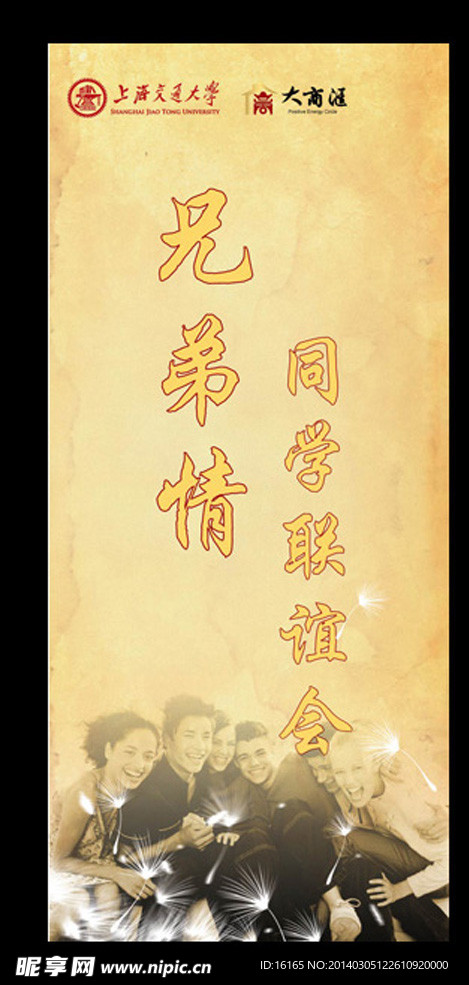 上海交通大学
SHANGHAI JIAO TONG UNIVERSITY
大商汇
Positive Energy Circle
兄弟情
同学联谊会
昵享网 www.nipic.cn
ID:16165 NO:20140305122610920000